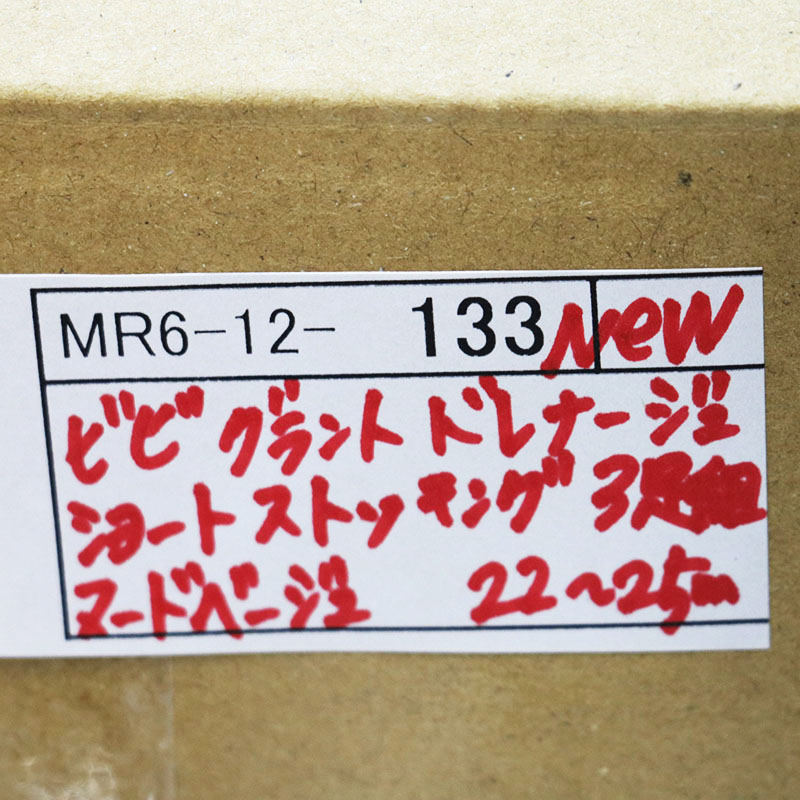 MR6-12- 133 New
ビビグラント ドレナージュ
ショートストッキング 3足組
ヌードベージュ 22~25cm